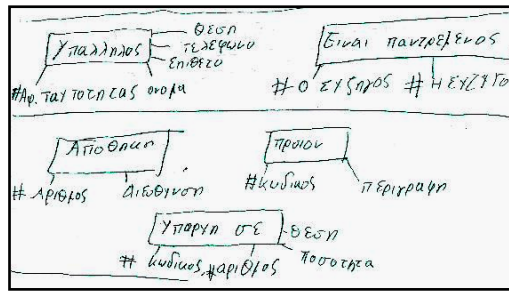 θεση
Υπαλληλος τελεφωνο
Επιθετο
#Αρ. ταυτοτητας ονομα
Ειναι παντρεμενος
# Ο συζηγος # Η συζυγο
Αποθηκη
# Αριθμος διευθηνση
προιον
#κωδικος περιγραφη
Υπαρχη σε θεση
# κωδικος, #αριθμος ποσοτητα